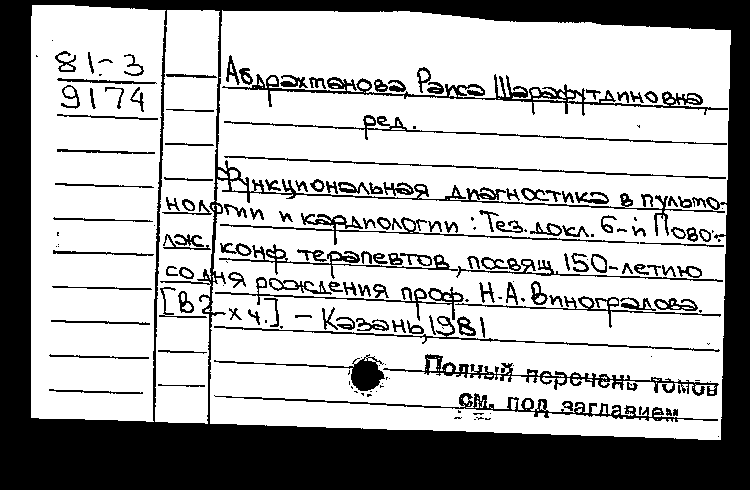 81-3
9174
Абдрахманова, Раиса Шарафутдиновна,
ред.
Функциональная диагностика в пульмо-
нологии и кардиологии : Тез. докл. 6-й Пово-
лж. конф. терапевтов, посвящ. 150-летию
со дня рождения проф. Н.А. Виноградова.
[В 2-х ч.] - Казань, 1981
Полный перечень томов
см. под заглавием